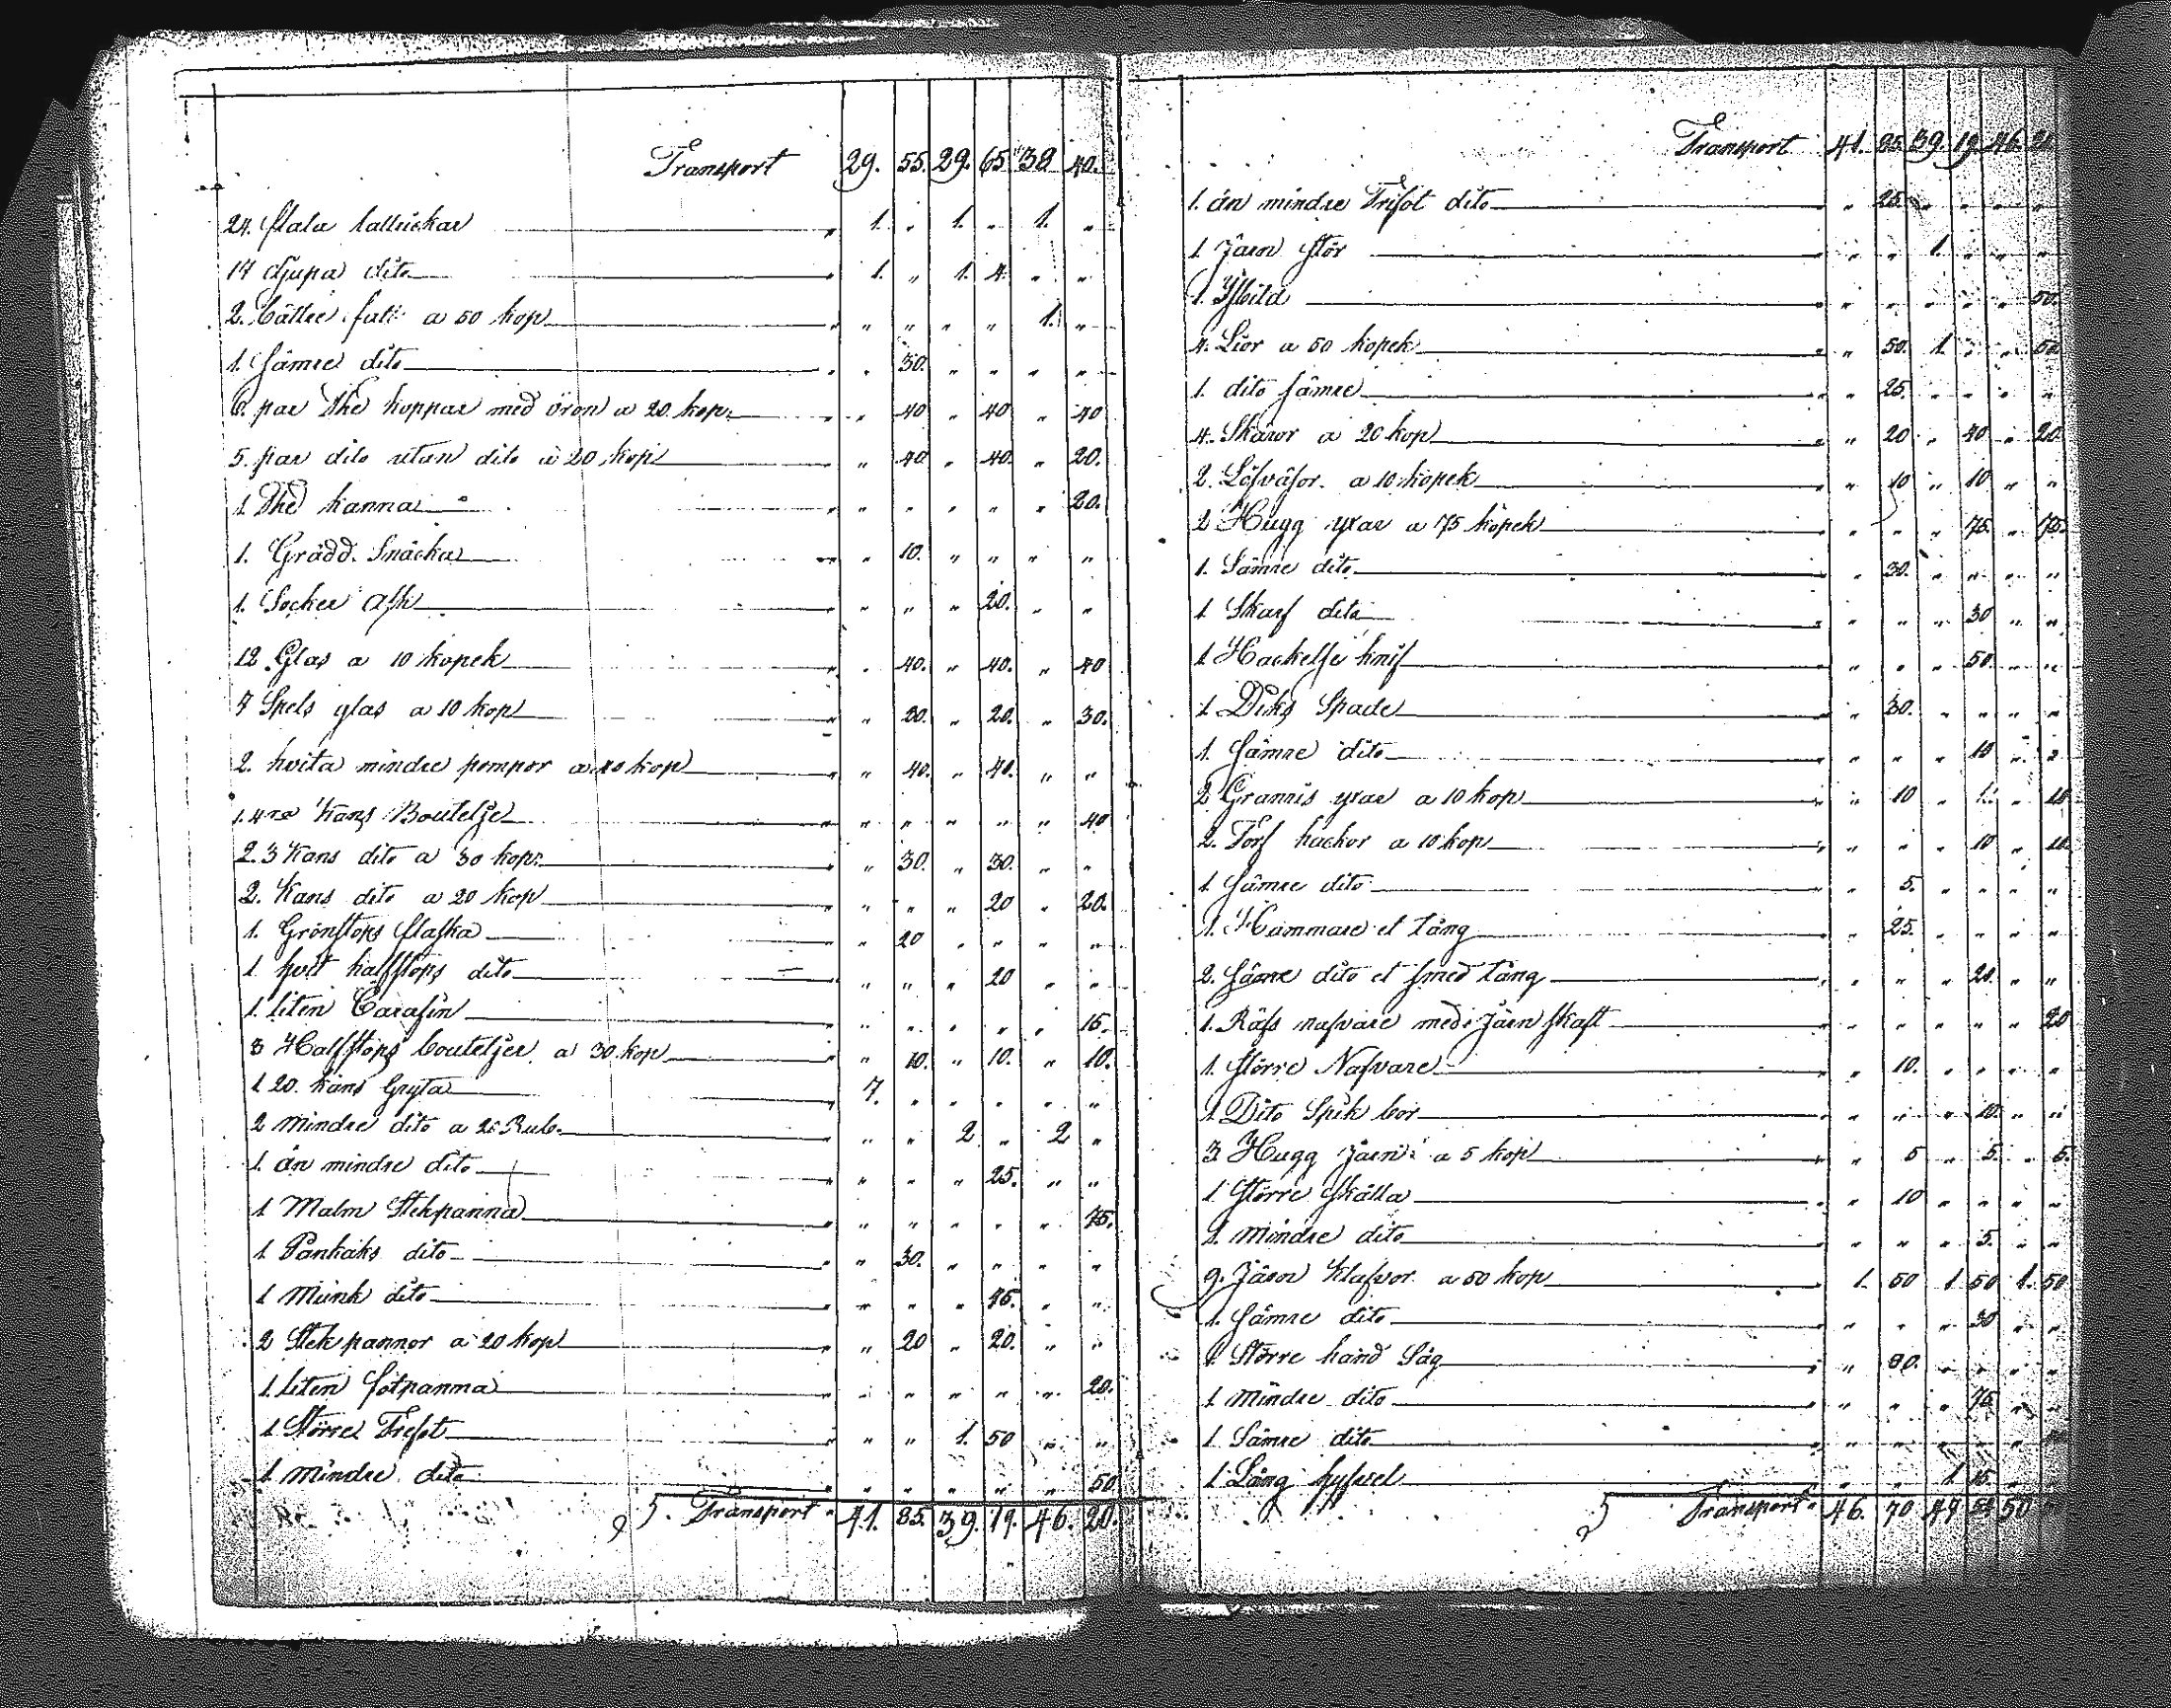 Transport 29. 55. 29. 65 38 40.
24. flata tallrickar " 1. " 1. " 1. "
14 djupa dito " 1. " 1. 4. " "
2. Bättre fatt a 50 kop " " " " " 1. "
1. Sämre dito " " 30. " " " "
6. par The koppar med öron a 20 kop. " " 40 " 40 " 40
5. par dito utan dito a 20 kop " " 40 " 40. " 20.
1. The kanna " " " " " " 20.
1. Grädd. Snäcka " " 10. " " " "
1. Socker Ask " " " " 20. " "
12. Glas a 10 kopek " " 40. " 40. " 40
7 Spets glas a 10 kop " " 20. " 20. " 30.
2. hvita mindre pompor a 40 kop " " 40. " 40. " "
1. 4ra Kans Boutelje " " " " " " 40
2. 3 Kans dito a 30 kop. " " 30. " 30. " "
2. Kans dito a 20 kop " " " " 20 " 20.
1. Grönstops flaska " " 20 " " " "
1. hvit halfstops dito " " " " 20 " "
1. liten Carafin " " " " " " 15.
3 Halfstops bouteljer a 30 kop " " 10. " 10. " 10.
1 20. kans Gryta " 7. " " " " "
2 mindre dito a 2 Rub. " " " 2 " 2 "
1. än mindre dito " " " " 25. " "
1 Malm Stekpanna " " " " " " 75.
1. Pankaks dito " " 30. " " " "
1 Munk dito " " " " 75. " "
2 Stek pannor a 20 kop " " 20 " 20. " "
1. liten fotpanna " " " " " " 20.
1. Större Trefot " " " 1. 50 " "
1. mindre dito " " " " " " 50
Transport " 41. 85. 39. 19. 46. 20.
Transport 41. 85. 39 19. 46. 20
1. än mindre Trifot dito " " 25. " " " "
1 Järn stör " " " 1. " " "
1. Isbila " " " " " " 50.
4. Liar a 50 kopek " " 50. 1. " " 50.
1. dito sämre " " 25. " " " "
4. Skäror a 20 kop " " 20 " 40 " 20.
2. Löfväsor. a 10 kopek " " 10 " 10 " "
2 Hugg yxar a 75 kopek " " " " 75. " 75.
1. Sämre dito " " 30. " " " "
1 Skarf dito " " " " 30 " "
1 Hackelse knif " " " " 50. " "
1 Diks Spade " " 30. " " " "
1. Sämre dito " " " " 10 " "
2 Grannis yxar a 10 kop " " 10 " " " 10
2. Torf hackor a 10 kop " " " " 10 " 10.
1. Sämre dito " " 5. " " " "
1. Hammare et Tång " " 25. " " " "
2. Sämre dito et smed tång " " " " 20. " "
1. Räfs nafvare med Järn skaft " " " " " " 20
1. större Nafvare " " 10. " " " "
1. Dito Spik bor " " " " 10. " "
3 Hugg Järn a 5 kop " " 5 " 5. " 5.
1. Större Skälla " " 10 " " " "
1. mindre dito " " " " 5. " "
9. Järn Klafvor a 50 kop 1. 50 1 50 1. 50
1. Sämre dito " " " " 30 " "
1. Större hand Såg " " 90. " " " "
1. mindre dito " " " " 75 " "
1. Sämre dito
1. Lång hyfvel " " " 1 15. " "
Transport " 46. 70 47 54 50